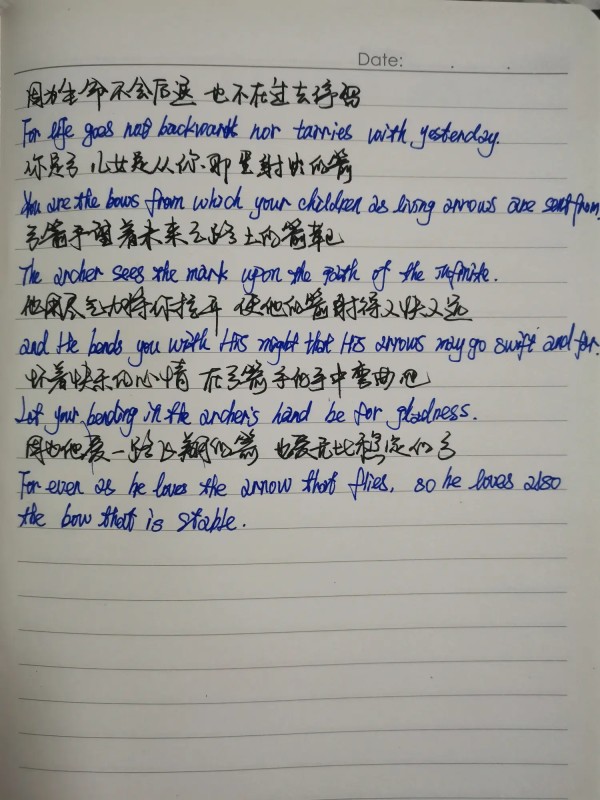 Date: . .
因为生命不会后退 也不在过去停留
For life goes not backward nor tarries with yesterday.
你是弓 儿女是从你那里射出的箭
You are the bows from which your children as living arrows are sent from.
弓箭手望着未来之路上的箭靶
The archer sees the mark upon the path of the infinite.
他用尽气力将你拉开 使他的箭射得又快又远
and He bends you with His might that His arrows may go swift and far.
怀着快乐的心情 在弓箭手的手中弯曲吧
Let your bending in the archer's hand be for gladness.
因为他爱一路飞翔的箭 也爱无比稳定的弓
For even as he loves the arrow that flies, so he loves also
the bow that is stable.